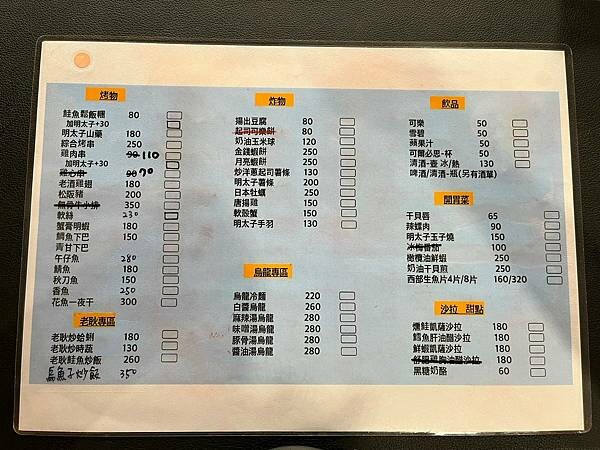 烤物
鮭魚鬆飯糰 80
加明太子+30
明太子山藥 180
綜合烤串 250
雞肉串 90 110
加明太子+30
雞心串 90 70
老酒雞翅 180
松阪豬 200
無骨牛小排 350
軟絲 230
蟹膏明蝦 180
鱈魚下巴 150
青甘下巴
午仔魚 280
鯖魚 180
秋刀魚 150
香魚 250
花魚一夜干 300
老耿專區
老耿炒蛤蜊 180
老耿炒時蔬 130
老耿鮭魚炒飯 260
烏魚子炒飯 350
炸物
揚出豆腐 80
起司可樂餅 80
奶油玉米球 120
金錢蝦餅 250
月亮蝦餅 250
炒洋蔥起司薯條 130
明太子薯條 200
日本牡蠣 250
唐揚雞 150
軟殼蟹 150
明太子手羽 130
烏龍專區
烏龍冷麵 220
白醬烏龍 260
麻辣湯烏龍 280
味噌湯烏龍 280
豚骨湯烏龍 280
醬油湯烏龍 280
飲品
可樂 50
雪碧 50
蘋果汁 50
可爾必思-杯 50
清酒-壺 冰/熱 130
啤酒/清酒-瓶(另有酒單)
開胃菜
干貝唇 65
辣螺肉 90
明太子玉子燒 150
冰梅番茄 100
橄欖油鮮蝦 250
奶油干貝煎 250
西部生魚片4片/8片 160/320
沙拉 甜點
燻鮭凱薩沙拉 180
鱈魚肝油醋沙拉 180
鮮蝦凱薩沙拉 180
舒肥雞胸油醋沙拉 180
黑糖奶酪 60